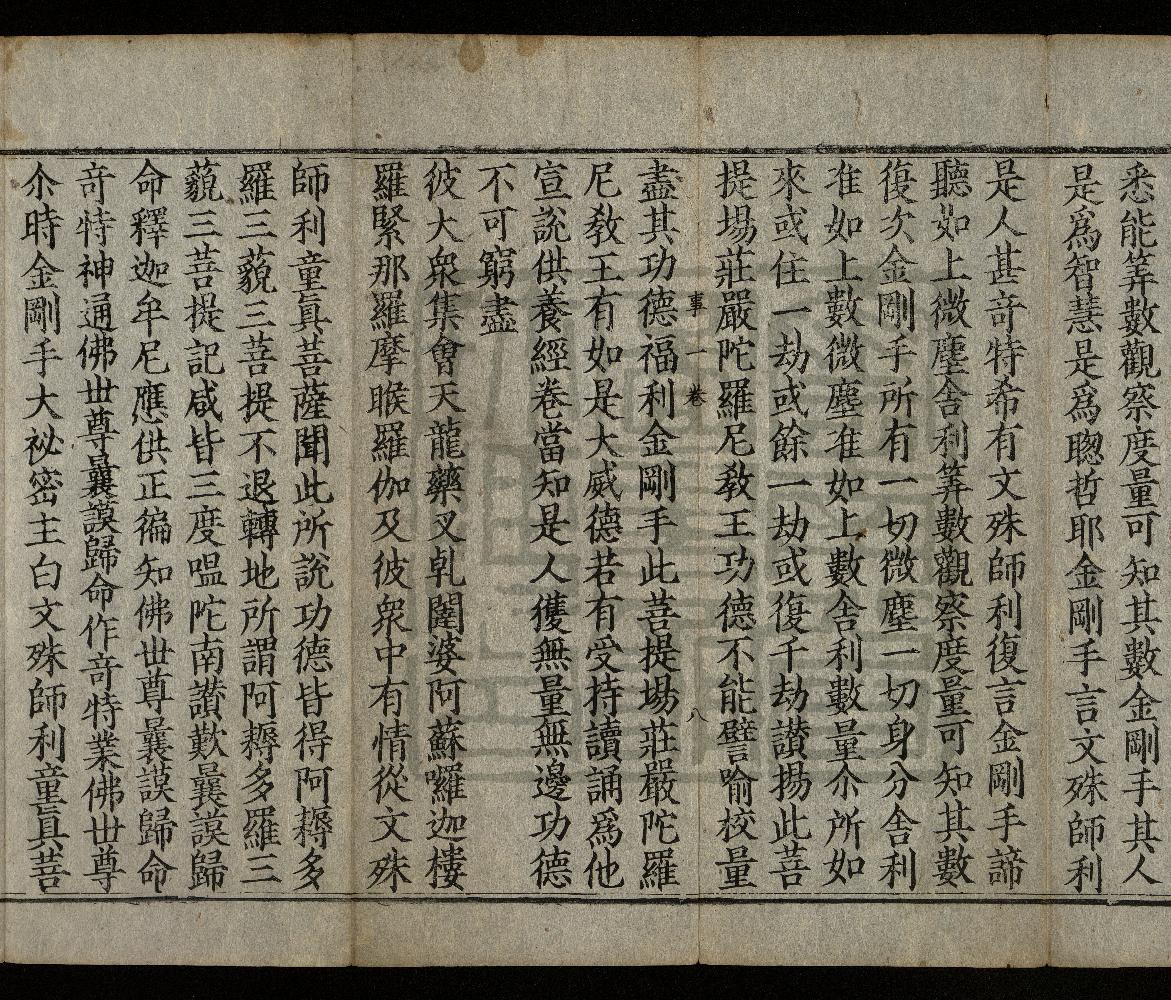 悉能筭數觀察度量可知其數金剛手其人
是爲智慧是爲聰哲耶金剛手言文殊師利
是人甚竒特希有文殊師利復言金剛手諦
聽如上微塵舍利筭數觀察度量可知其數
復次金剛手所有一切微塵一切身分舍利
准如上數微塵准如上數舍利數量尒所如
來或住一劫或餘一劫或復千劫讃揚此菩
提場莊嚴陀羅尼教王功德不能譬喻校量
軍一卷 八
盡其功德福利金剛手此菩提場莊嚴陀羅
尼教王有如是大威德若有受持讀誦爲他
宣說供養經卷當知是人獲無量無邊功德
不可窮盡
彼大衆集會天龍藥叉乹闥婆阿蘇囉迦樓
羅緊那羅摩睺羅伽及彼衆中有情從文殊
師利童真菩薩聞此所說功德皆得阿耨多
羅三藐三菩提不退轉地所謂阿耨多羅三
藐三菩提記咸皆三度嗢陀南讃歎曩謨歸
命釋迦牟尼應供正徧知佛世尊曩謨歸命
竒特神通佛世尊曩謨歸命作竒特業佛世尊
尒時金剛手大祕密主白文殊師利童真菩